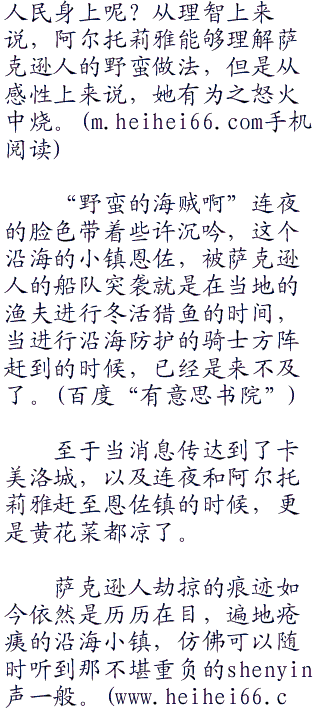 人民身上呢？从理智上来
说，阿尔托莉雅能够理解萨
克逊人的野蛮做法，但是从
感性上来说，她有为之怒火
中烧。(m.heihei66.com手机
阅读)
“野蛮的海贼啊”连夜
的脸色带着些许沉吟，这个
沿海的小镇恩佐，被萨克逊
人的船队突袭就是在当地的
渔夫进行冬活猎鱼的时间，
当进行沿海防护的骑士方阵
赶到的时候，已经是来不及
了。(百度“有意思书院”)
至于当消息传达到了卡
美洛城，以及连夜和阿尔托
莉雅赶至恩佐镇的时候，更
是黄花菜都凉了。
萨克逊人劫掠的痕迹如
今依然是历历在目，遍地疮
痍的沿海小镇，仿佛可以随
时听到那不堪重负的shenyin
声一般。(www.heihei66.c